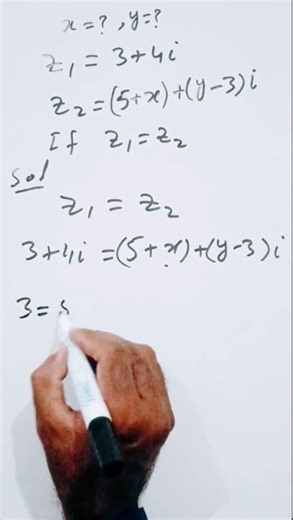 x=?, y=?
z₁ = 3+4i
z₂=(5+x)+(y-3)i
If z₁=z₂
Sol
z₁ = z₂
3+4i =(5+x)+(y-3)i
3=5